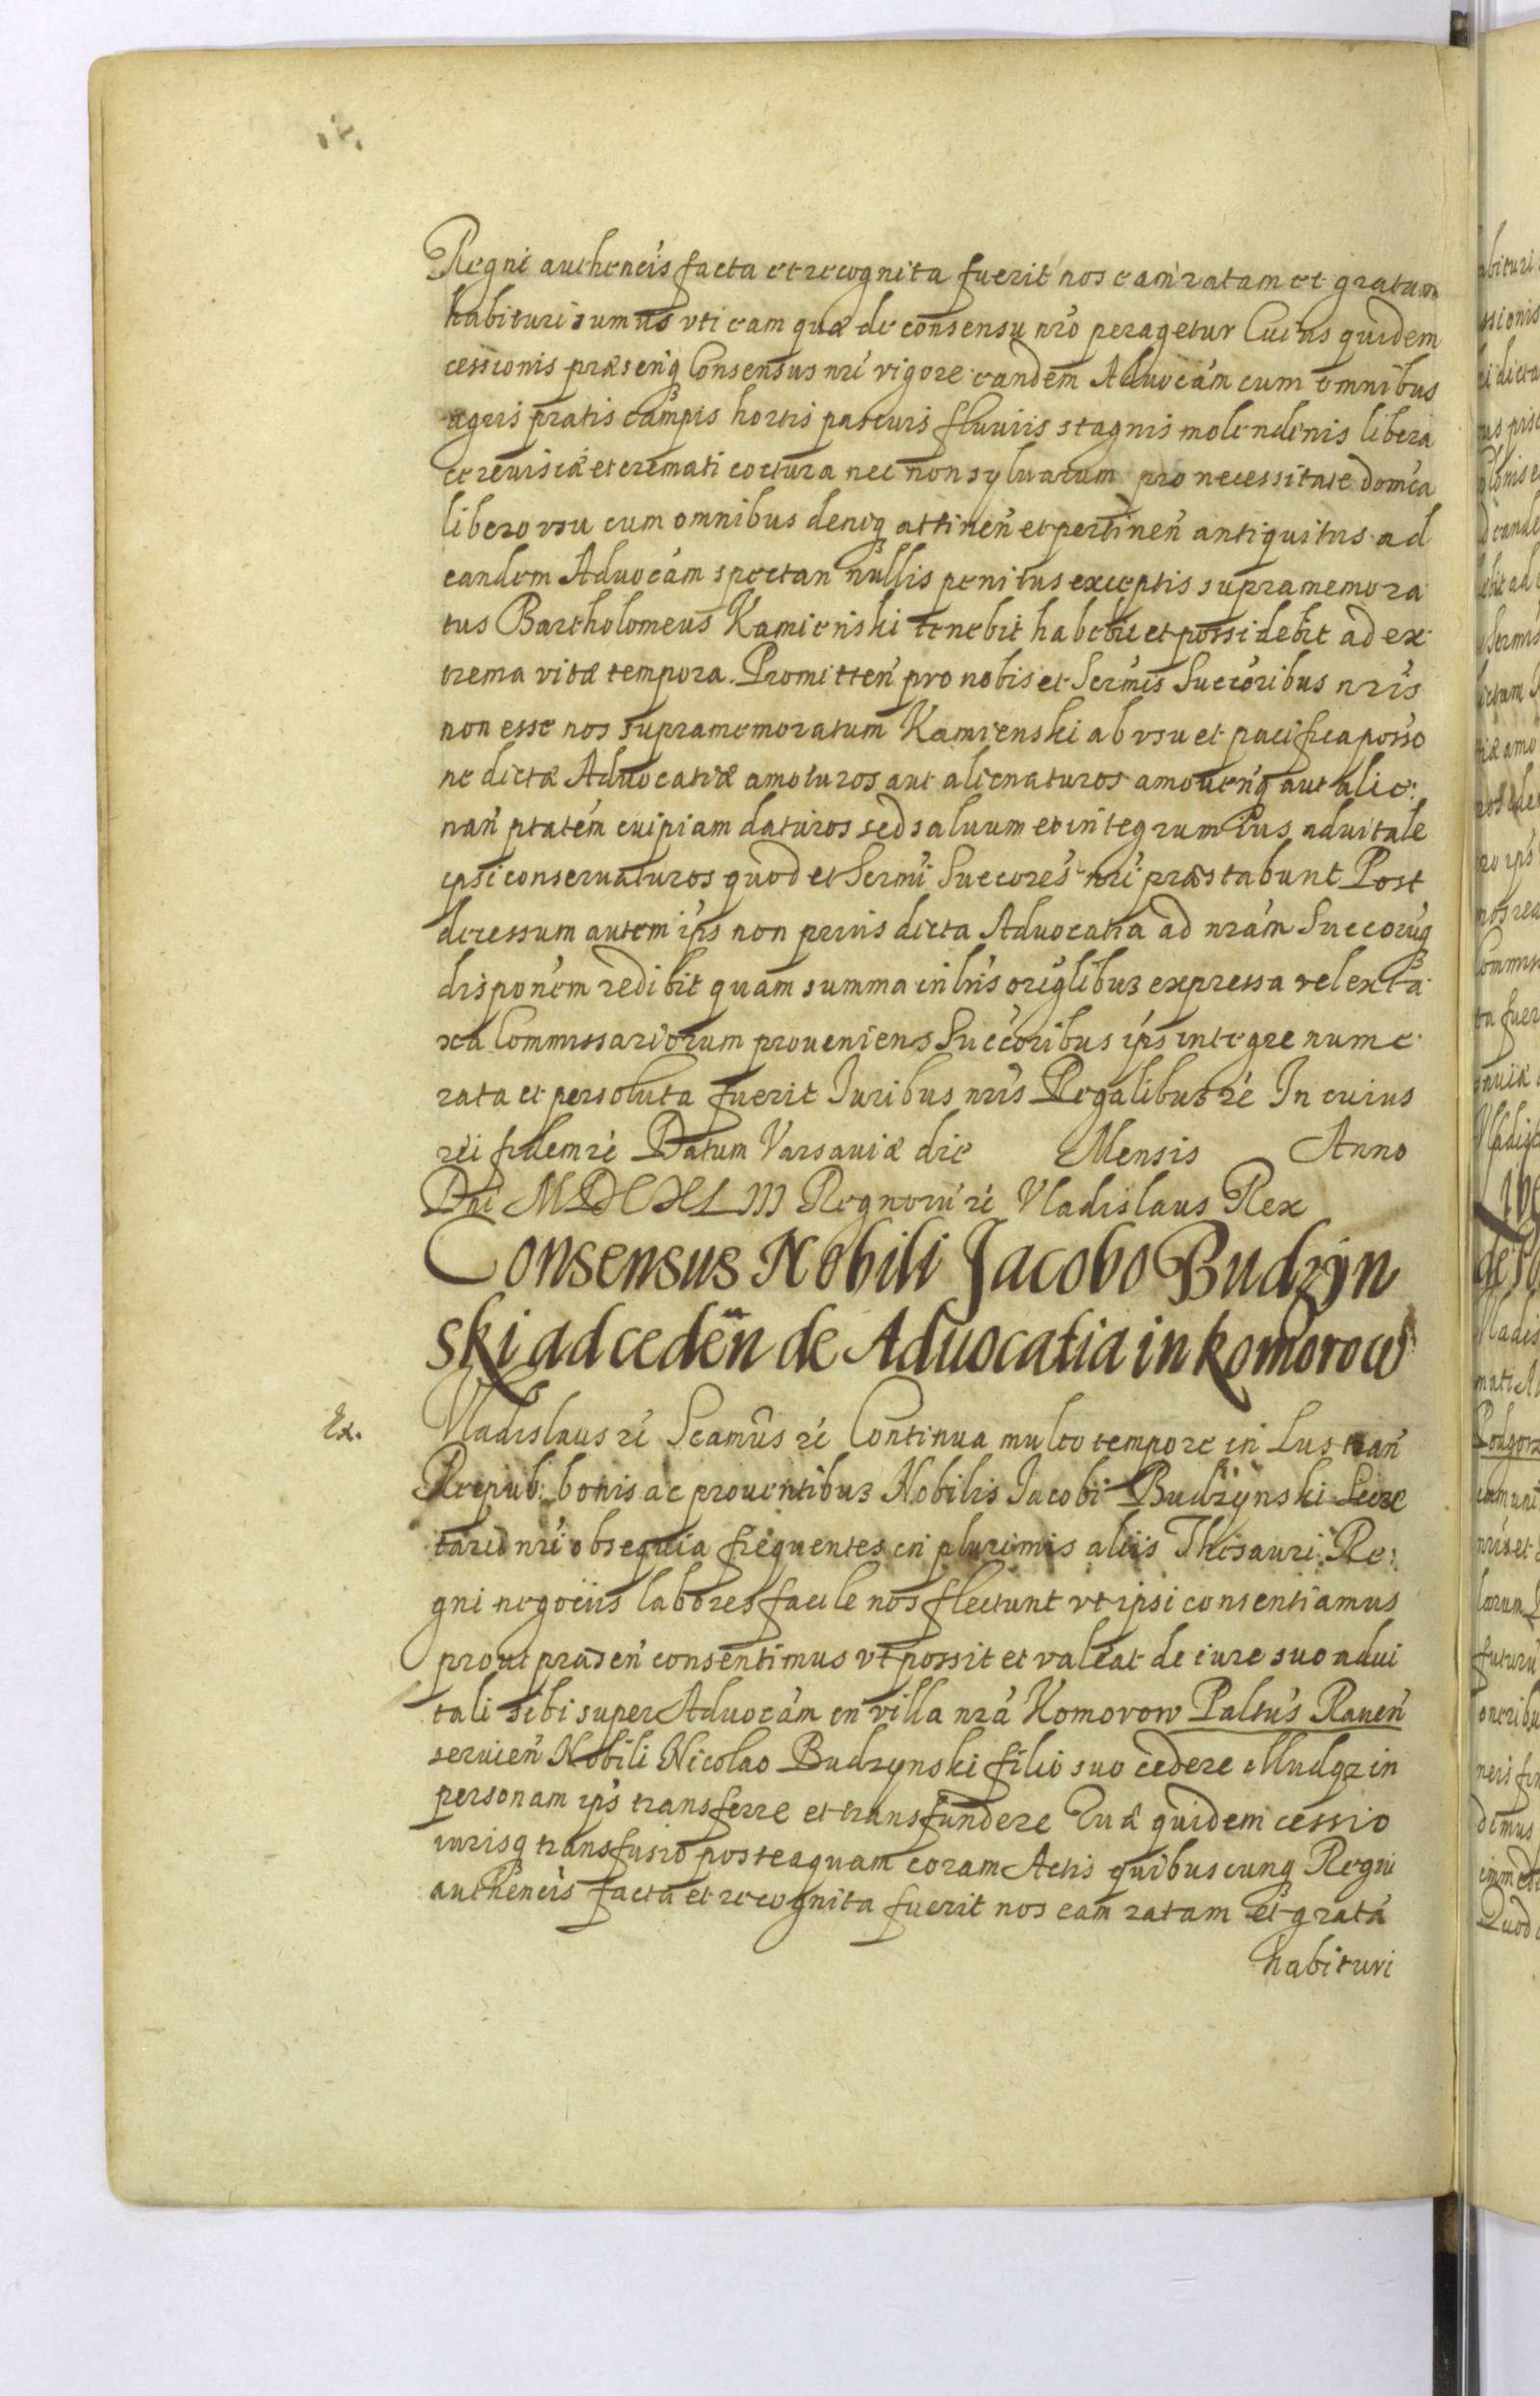 Regni authencis facta et recognita fuerit nos eam ratam et gratam
habituri sumus vti eam quæ de consensu nro peragetur Cuius quidem
cessionis præsenq Consensus nri vigore eandem Aduocam cum omnibus
agris pratis campis hortis pascuis fluuiis stagnis molendinis libera
cereuisiæ et cremati coctura nec non syluarum pro necessitate domca
libero vsu cum omnibus deniq attinen et pertinen antiquitus ad
eandem Aduocam spectan nullis penitus exceptis supramemora
tus Bartholomeus Kamienski tenebit habebit et possidebit ad ex
trema vitæ tempora. Promitten pro nobis et Sermis Succoribus nris
non esse nos supramemoratum Kamienski ab vsu et pacifica posso
ne dictæ Aduocatiæ amoturos aut alienaturos amouenq aut alie:
nan ptatem cuipiam daturos sed saluum et integrum Ius aduitale
ipsi conseruaturos quod et Sermi Succores nri præstabunt Post
decessum autem ips non prius dicta Aduocatia ad nram Succoruq
disponem redibit quam summa in lris origlibus expressa vel ex ta
xa Commissariorum proueniens Succoribus ips integre nume
rata et persoluta fuerit Iuribus nris Regalibus rc In cuius
rei fidem rc Datum Varsauiæ die Mensis Anno
Dni MDCXLIII Regnoru rc Vladislaus Rex
Consensus Nobili Jacobo Budzyn
ski ad ceden de Aduocatia in Komorow
Ex. Vladislaus rc Scamus rc Continua multo tempore in Lustran
Reipub: bonis ac prouentibus Nobilis Iacobi Budzynski Secre
tarii nri obsequia frequentes in plurimis aliis Thesauri Re:
gni negociis labores facile nos flectunt vt ipsi consentiamus
prout præsen consentimus vt possit et valeat de iure suo adui
tali sibi super Aduocam in villa nra Komorow Paltus Rauen
seruien Nobili Nicolao Budzynski filio suo cedere illudq in
personam ips transferre et transfundere Quæ quidem cessio
iurisq transfusio posteaquam coram Actis quibuscunq Regni
authencis facta et recognita fuerit nos eam ratam et grata
habituri